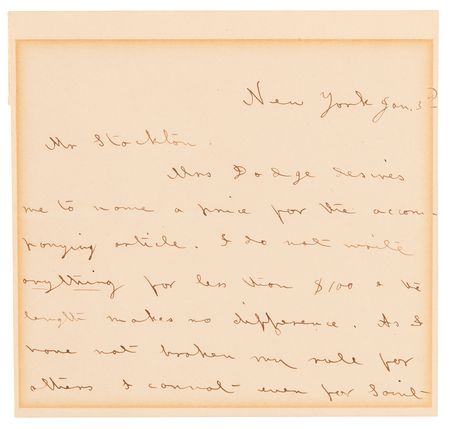 New York Jan. 3d
Mr Stockton.
Mrs Dodge desires
me to name a price for the accom-
panying article. I do not write
anything for less than $100 & the
length makes no difference. As I
have not broken my rule for
others I cannot even for Saint